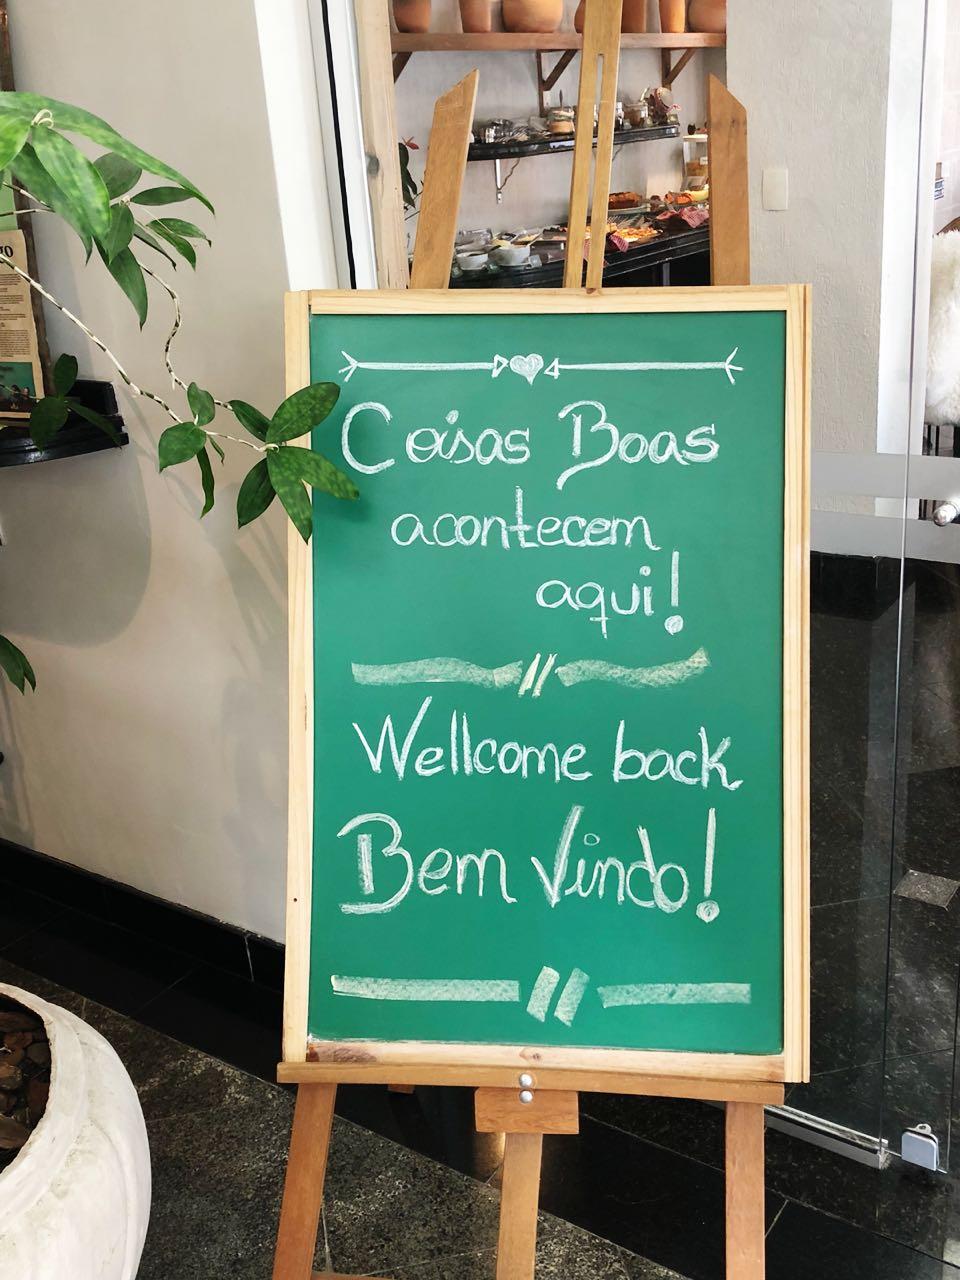 Coisas Boas
acontecem
aqui!
Wellcome back
Bem Vindo!